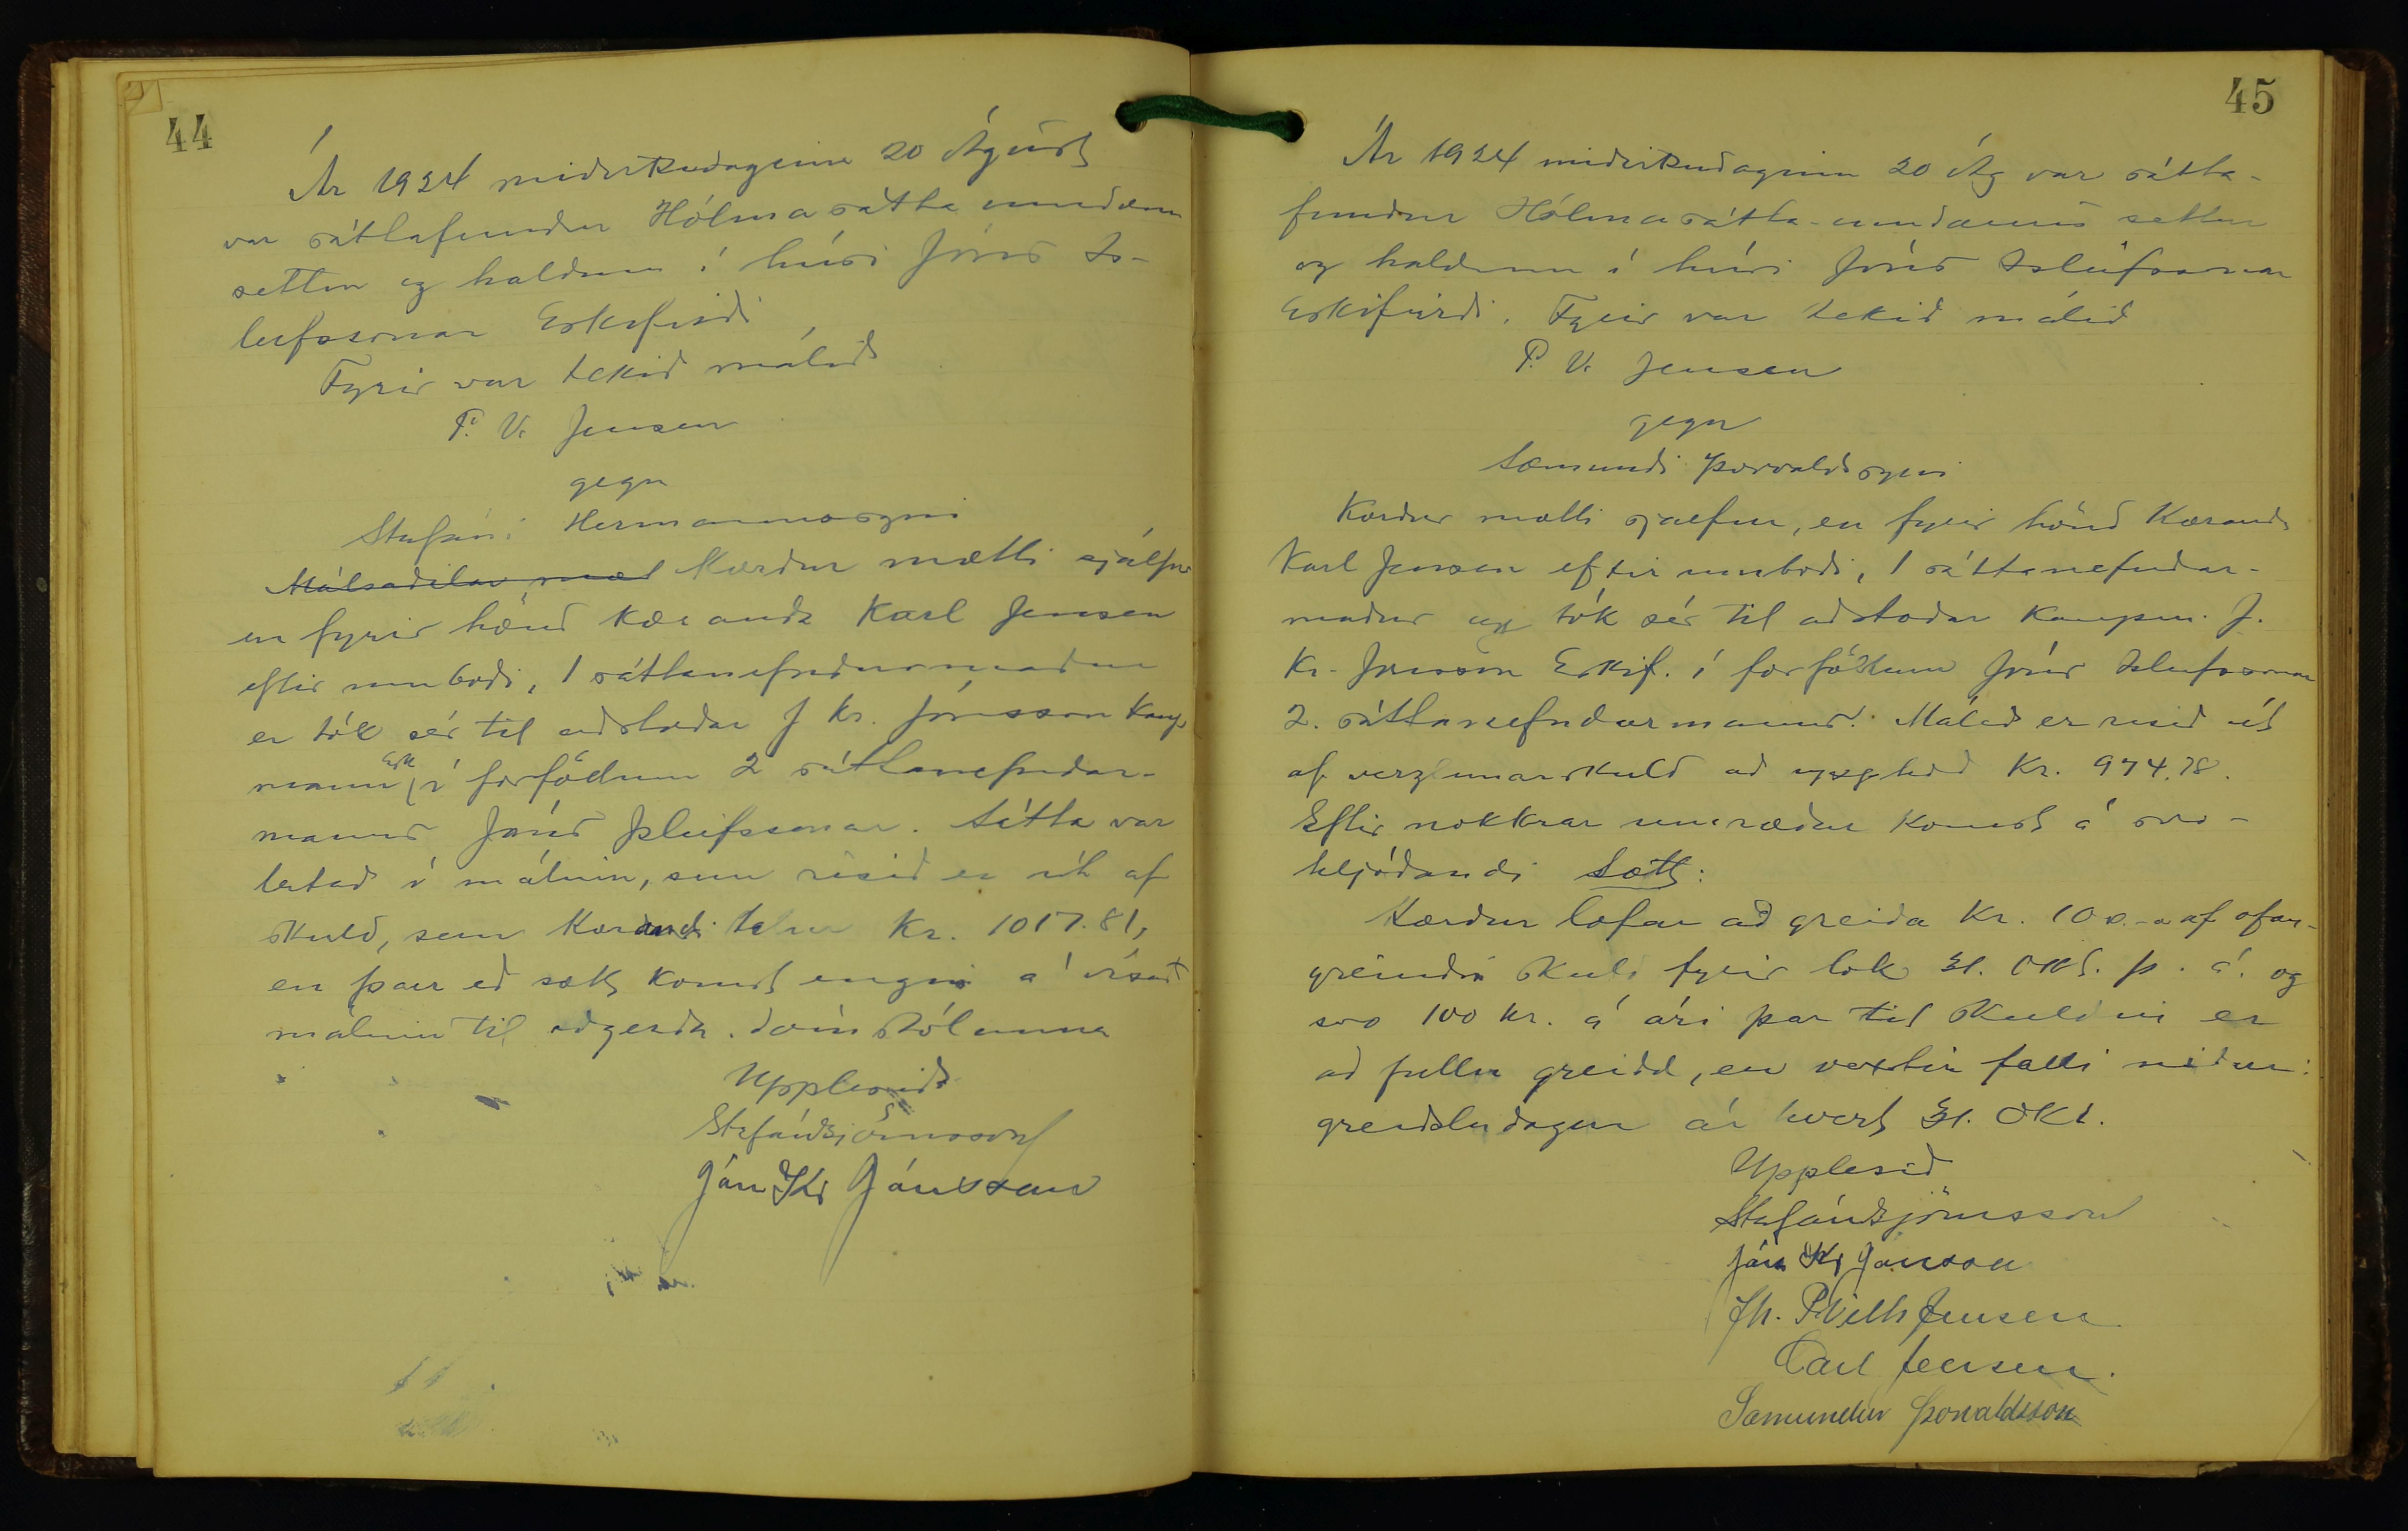 44
Ár 1924 miðvikudaginn 20 Ágúst
var sáttafundur Hólmasáttaumdæm
settur og haldinn í húsi Jóns Ís-
leifssonar Eskifirði
Fyrir var tekið málið
P. V. Jensen
gegn
Stefáni Hermannssyni
Málsaðilar mæt Kærður mætti sjálfur
en fyrir hönd kæranda Karl Jensen
eftir umboði, 1 sáttanefndarmaður
er tók sér til aðstoðar J Kr. Jónsson kaup
mann Esk í forföllum 2 sáttanefndar-
manns Jóns Ísleifssonar. Sátta var
leitað í málinu, sem risið er út af
skuld, sem kærandi telur kr. 1017.81,
en þar eð sætt komst engin á vísast
málinu til aðgerða dómstólanna
Upplesið
Stefán Björnsson
Jón Kr Jónsson
45
Ár 1924 miðvikudaginn 20 Ág var sátta-
fundur Hólmasátta-umdæmis settur
og haldinn í húsi Jóns Ísleifssonar
Eskifirði. Fyrir var tekið málið
P. V. Jensen
gegn
Sæmundi Þorvaldssyni
Kærður mætti sjálfur, en fyrir hönd kæranda
Karl Jensen eftir umboði, 1 sáttanefndar-
maður og tók sér til aðstoðar kaupm. J.
Kr. Jónsson Eskif. í forföllum Jóns Ísleifssonar
2. sáttanefndarmanns. Málið er risið út
af verzlunarskuld að upphæð Kr. 974.78.
Eftir nokkrar umræður komst á svo-
hljóðandi Sætt:
Kærður lofar að greiða Kr. 100.- af ofan-
greindri skuld fyrir lok 31. Okt. þ. á. og
svo 100 kr. á ári þar til skuldin er
að fullu greidd, en vextir falli niður:
greiðsludagur ár hvert 31. Okt.
Upplesið
Stefán Björnsson
Jón Kr Jónsson
fh. P Vilh Jensen
Carl Jensen.
Sæmundur Þorvaldsson